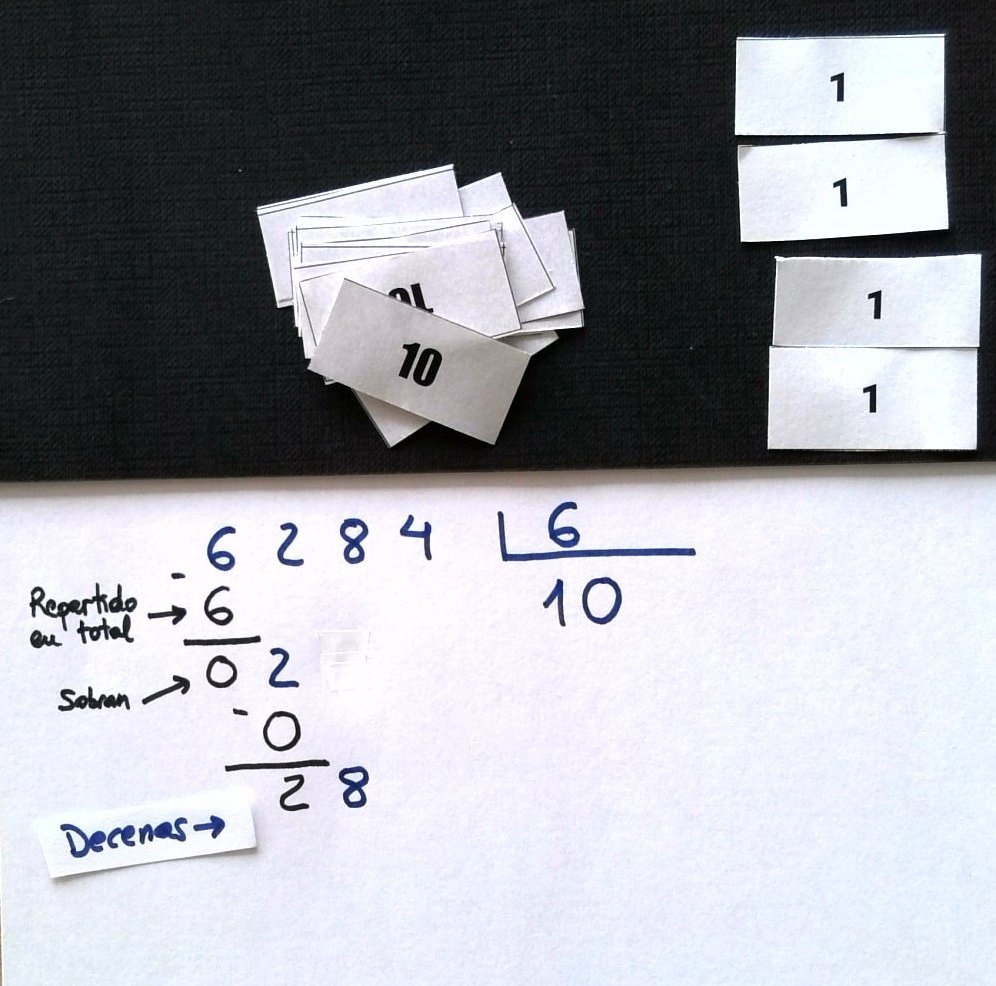 1
1
1
1
10
10
6 2 8 4 6
- 6 10
Repartido
en total →
0 2
Sobran →
- 0
2 8
Decenas →